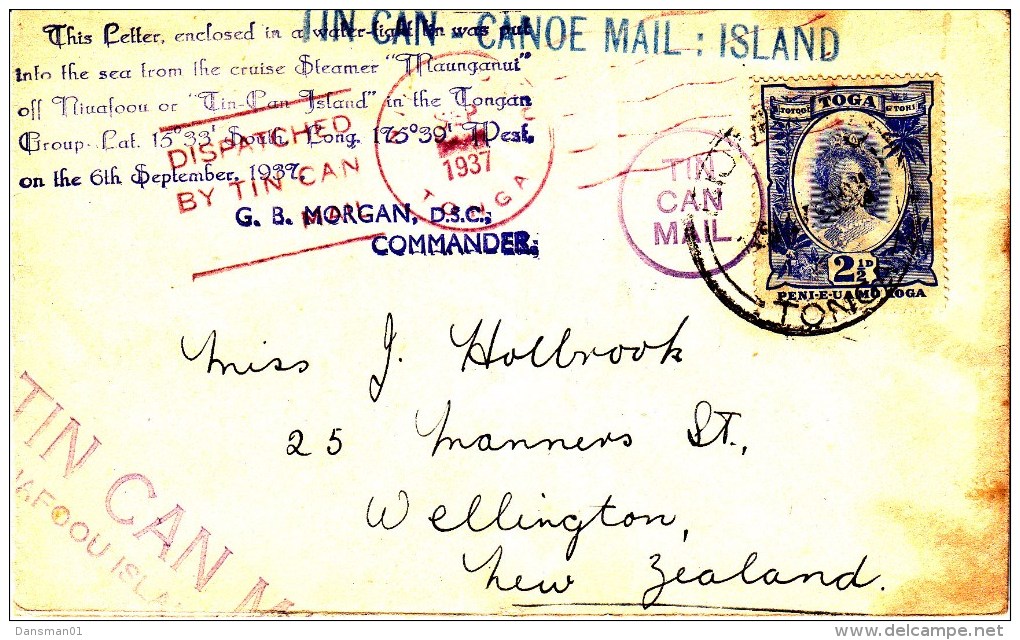 TIN CAN - CANOE MAIL : ISLAND
This Letter, enclosed in a water-tight tin was put
into the sea from the cruise Steamer "Maunganui"
off Niuafoou or "Tin-Can Island" in the Tongan
Group. Lat. 15°33' South, Long. 175°39' West.
on the 6th September, 1937.
G. B. MORGAN, D.S.C.,
COMMANDER,
DISPATCHED
BY TIN CAN
MAIL
SEP
1937
TONGA
TIN
CAN
MAIL
TOGA
2½D
PENI-E-UA MO TOGA
TONGA
Miss J. Holbrook
25 Manners St.,
Wellington,
New Zealand.
TIN CAN M
IAFOOU ISLA
Dansman01
delcampe.net